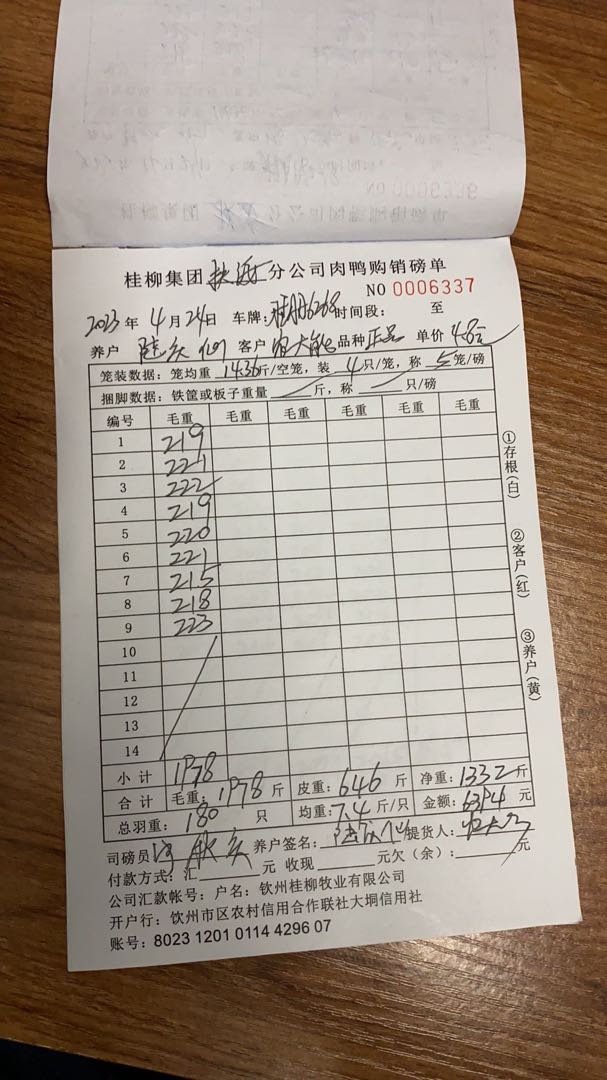 NO 0006336
桂柳集团 分公司肉鸭购销磅单
NO 0006337
2023年 4月24日 车牌: 时间段: 至
养户 客户 品种 正品 单价 4.8元
笼装数据：笼均重 14.36斤/空笼，装 4只/笼，称 5笼/磅
捆脚数据：铁筐或板子重量 斤，称 只/磅
编号 毛重 毛重 毛重 毛重 毛重 毛重
1 219
2 221
3 222
4 219
5 220
6 221
7 215
8 218
9 223
10
11
12
13
14
小计 1978
合计 毛重：1978 斤 皮重：646 斤 净重：1332 斤
总羽重： 180 只 均重：7.4 斤/只 金额：6394 元
司磅员 养户签名： 提货人：
付款方式：汇 元 收现 元欠（余）： 元
公司汇款帐号：户名：钦州桂柳牧业有限公司
开户行：钦州市区农村信用合作联社大垌信用社
账号：8023 1201 0114 4296 07
①存根(白)
②客户(红)
③养户(黄)